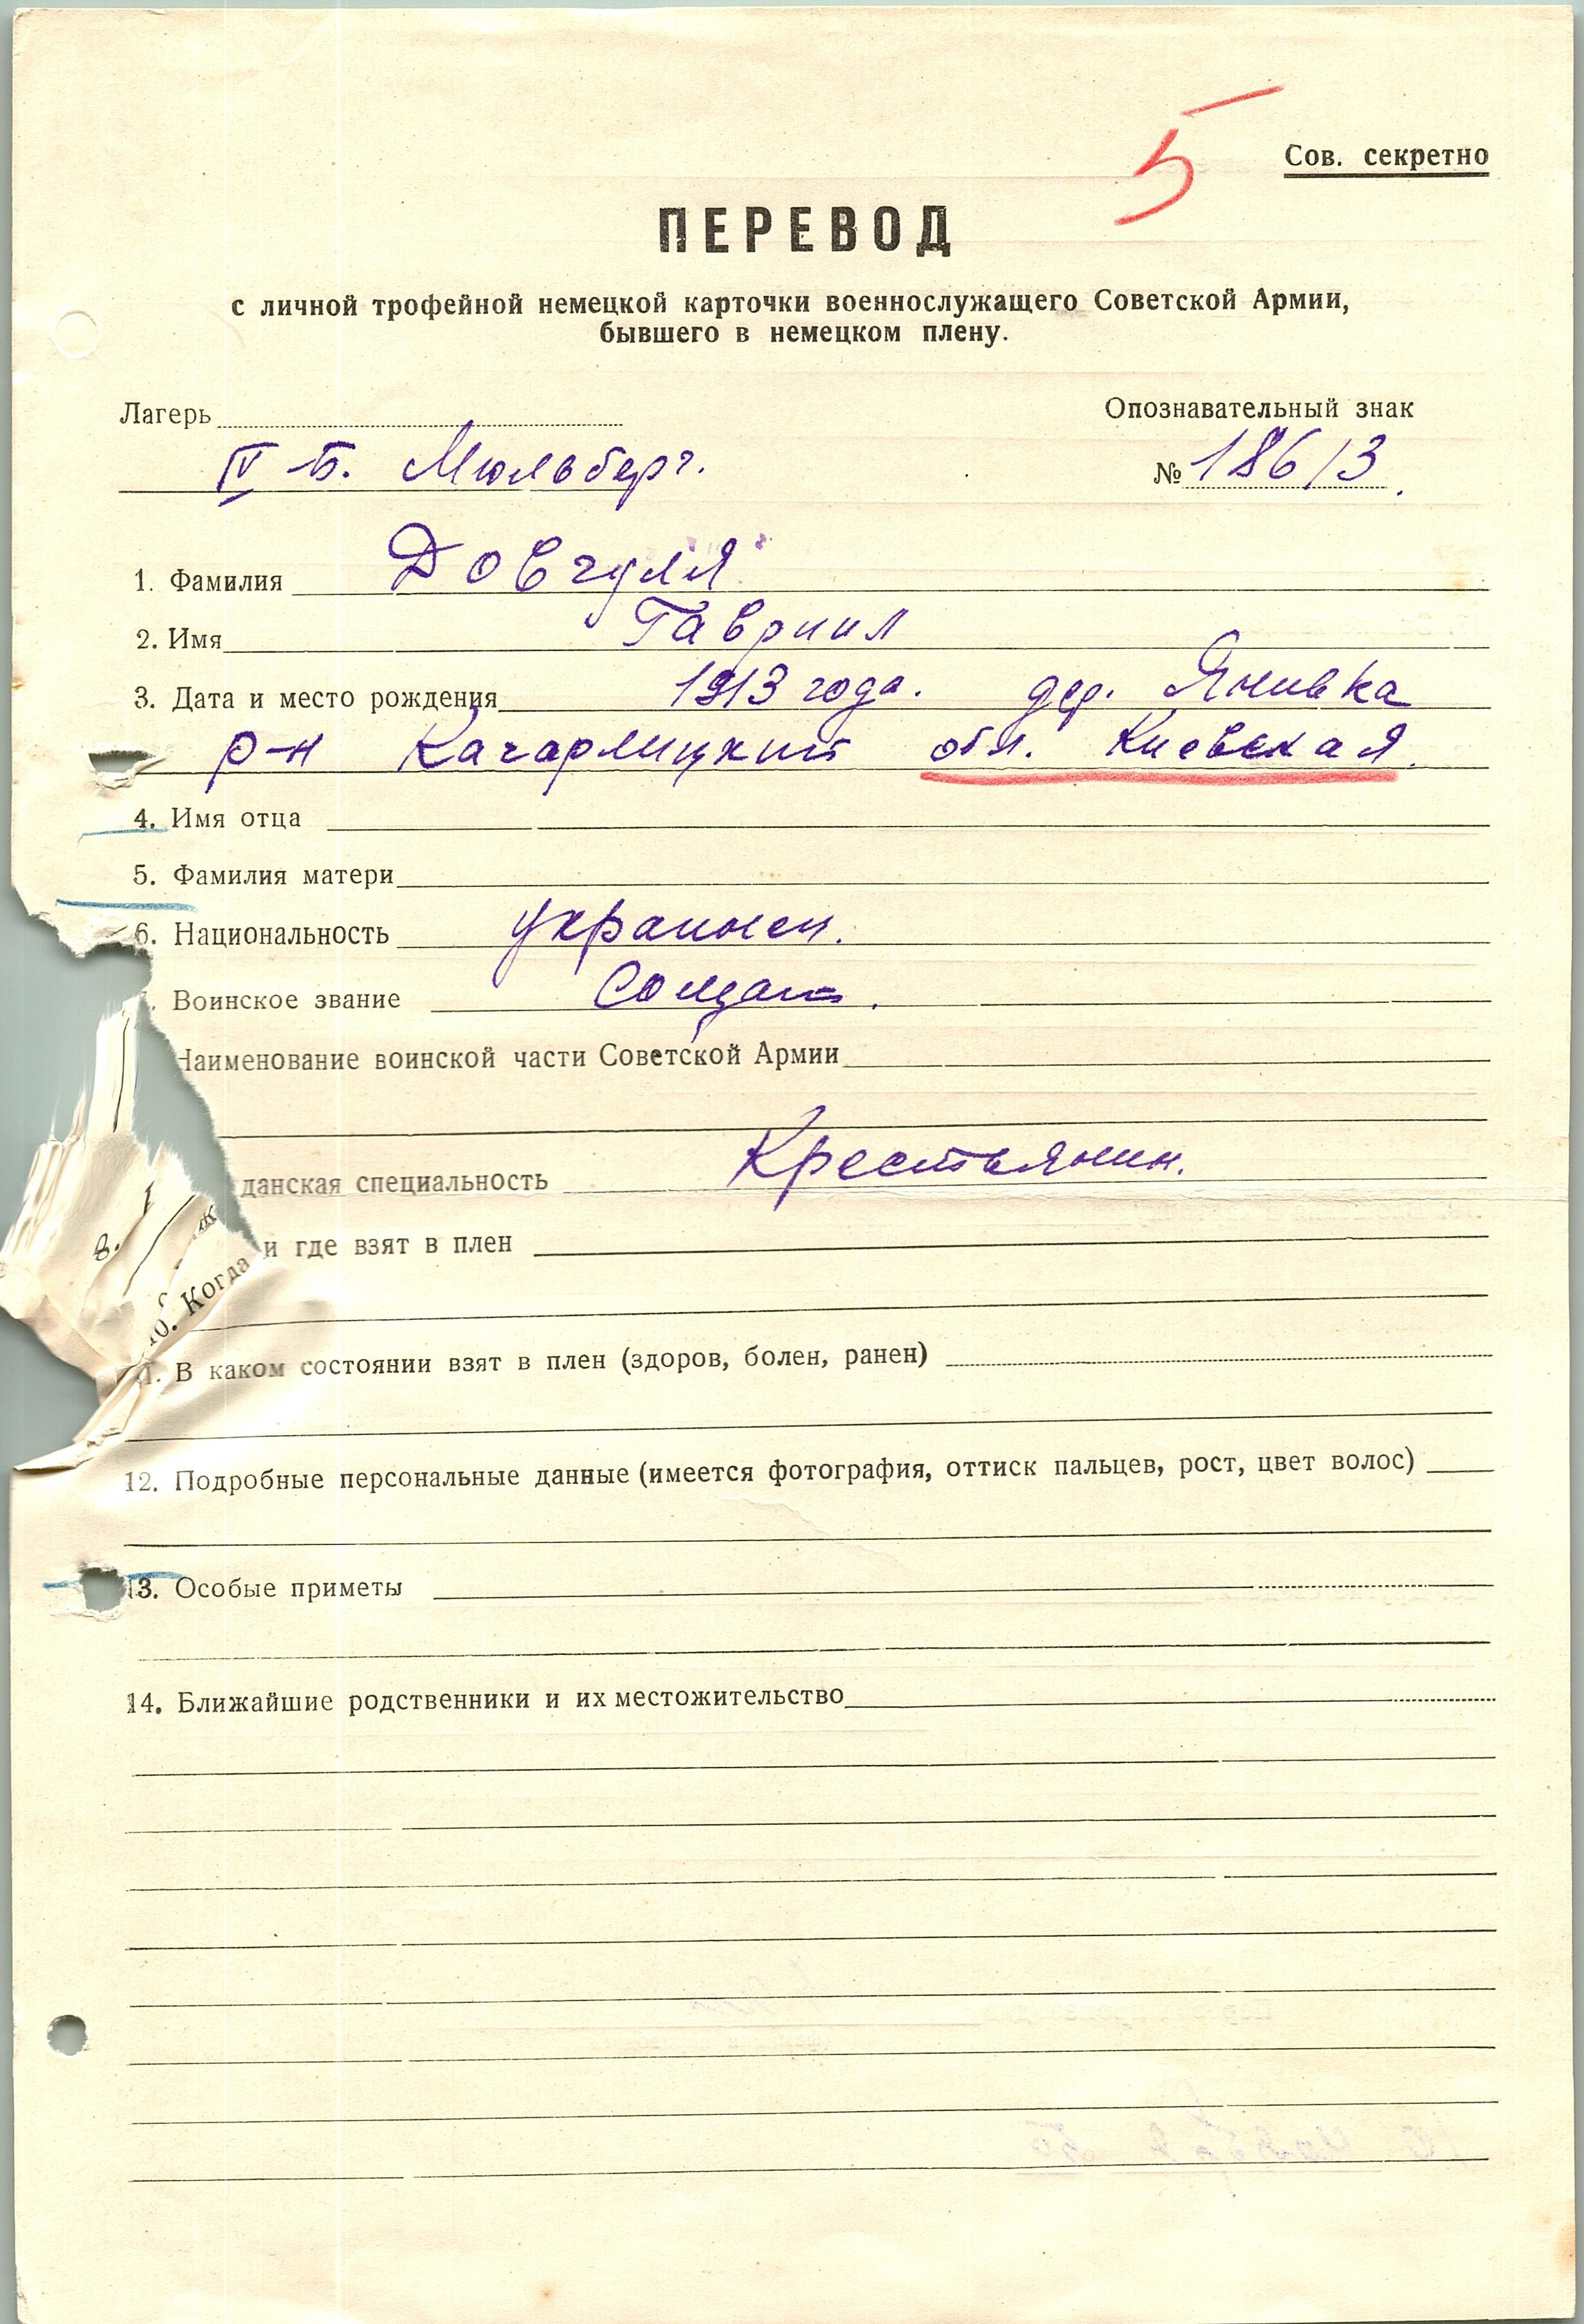 5
Сов. секретно
ПЕРЕВОД
с личной трофейной немецкой карточки военнослужащего Советской Армии,
бывшего в немецком плену.
Лагерь
Опознавательный знак
IV Б. Мюльберг.
№ 18613.
1. Фамилия Довгуля
2. Имя Гавриил
3. Дата и место рождения 1913 года. дер. Янивка
р-н Кагарлицкий обл. Киевская.
4. Имя отца
5. Фамилия матери
6. Национальность украинец.
Воинское звание Солдат.
Наименование воинской части Советской Армии
8.
данская специальность Крестьянин.
10. Когда и где взят в плен
В каком состоянии взят в плен (здоров, болен, ранен)
12. Подробные персональные данные (имеется фотография, оттиск пальцев, рост, цвет волос)
13. Особые приметы
14. Ближайшие родственники и их местожительство